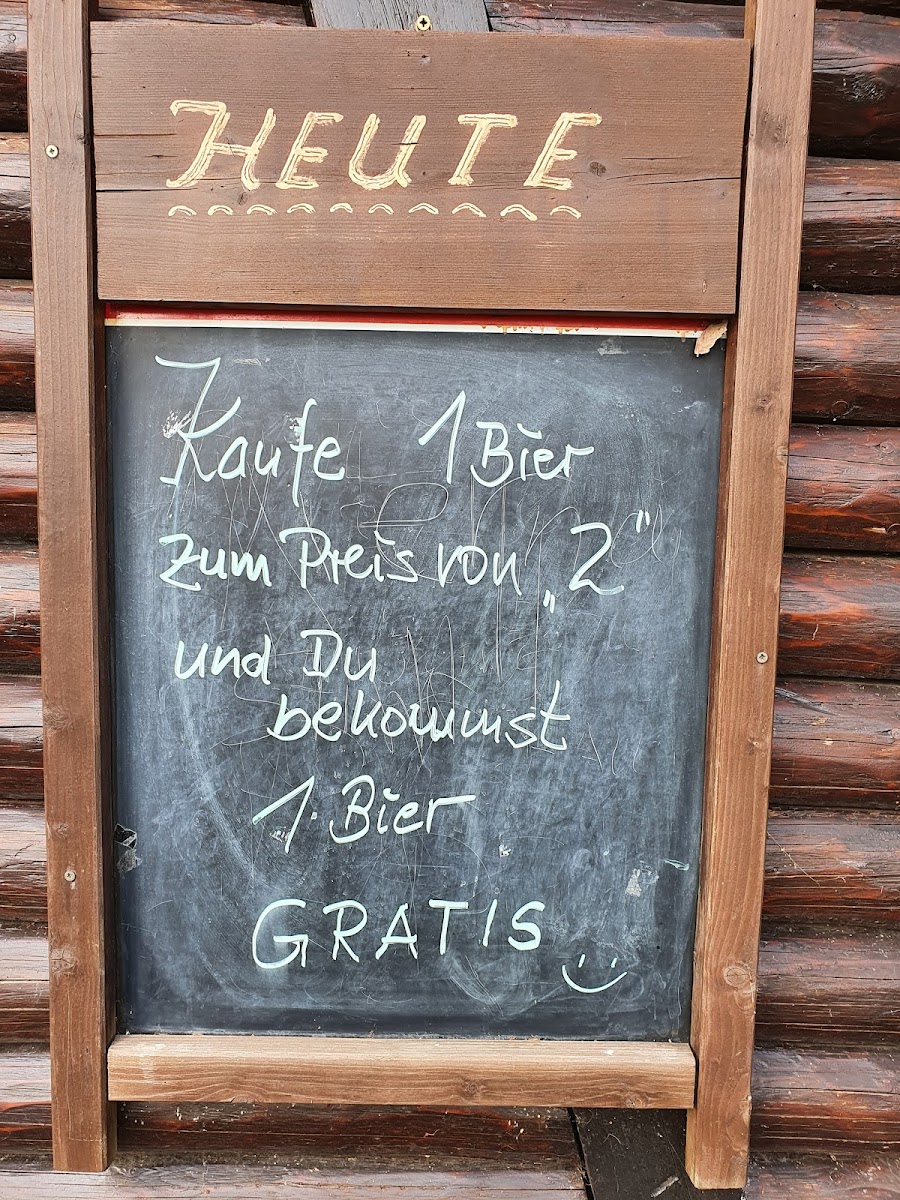 HEUTE
Kaufe 1 Bier
zum Preis von „2"
und Du
bekommst
1 Bier
GRATIS